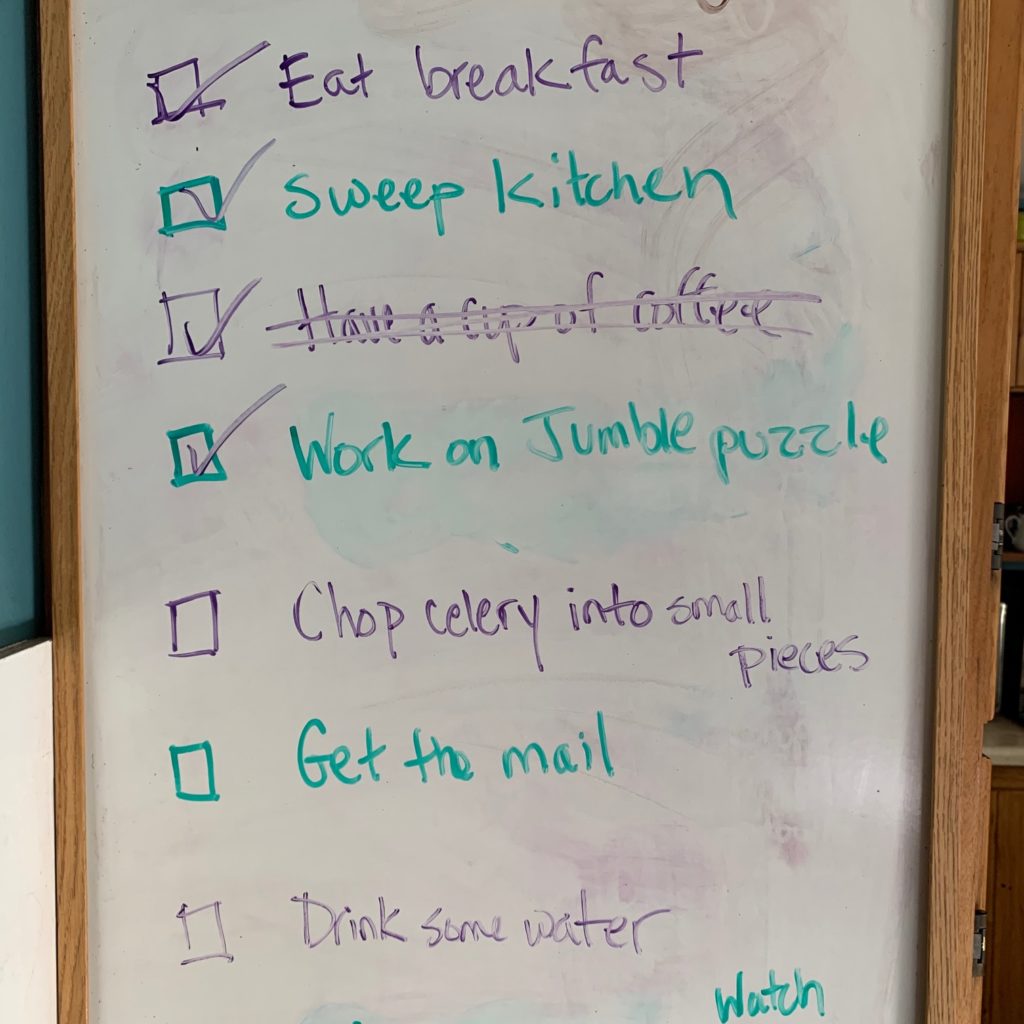 Eat breakfast
Sweep kitchen
Have a cup of coffee
Work on Jumble puzzle
Chop celery into small
pieces
Get the mail
Drink some water
Watch